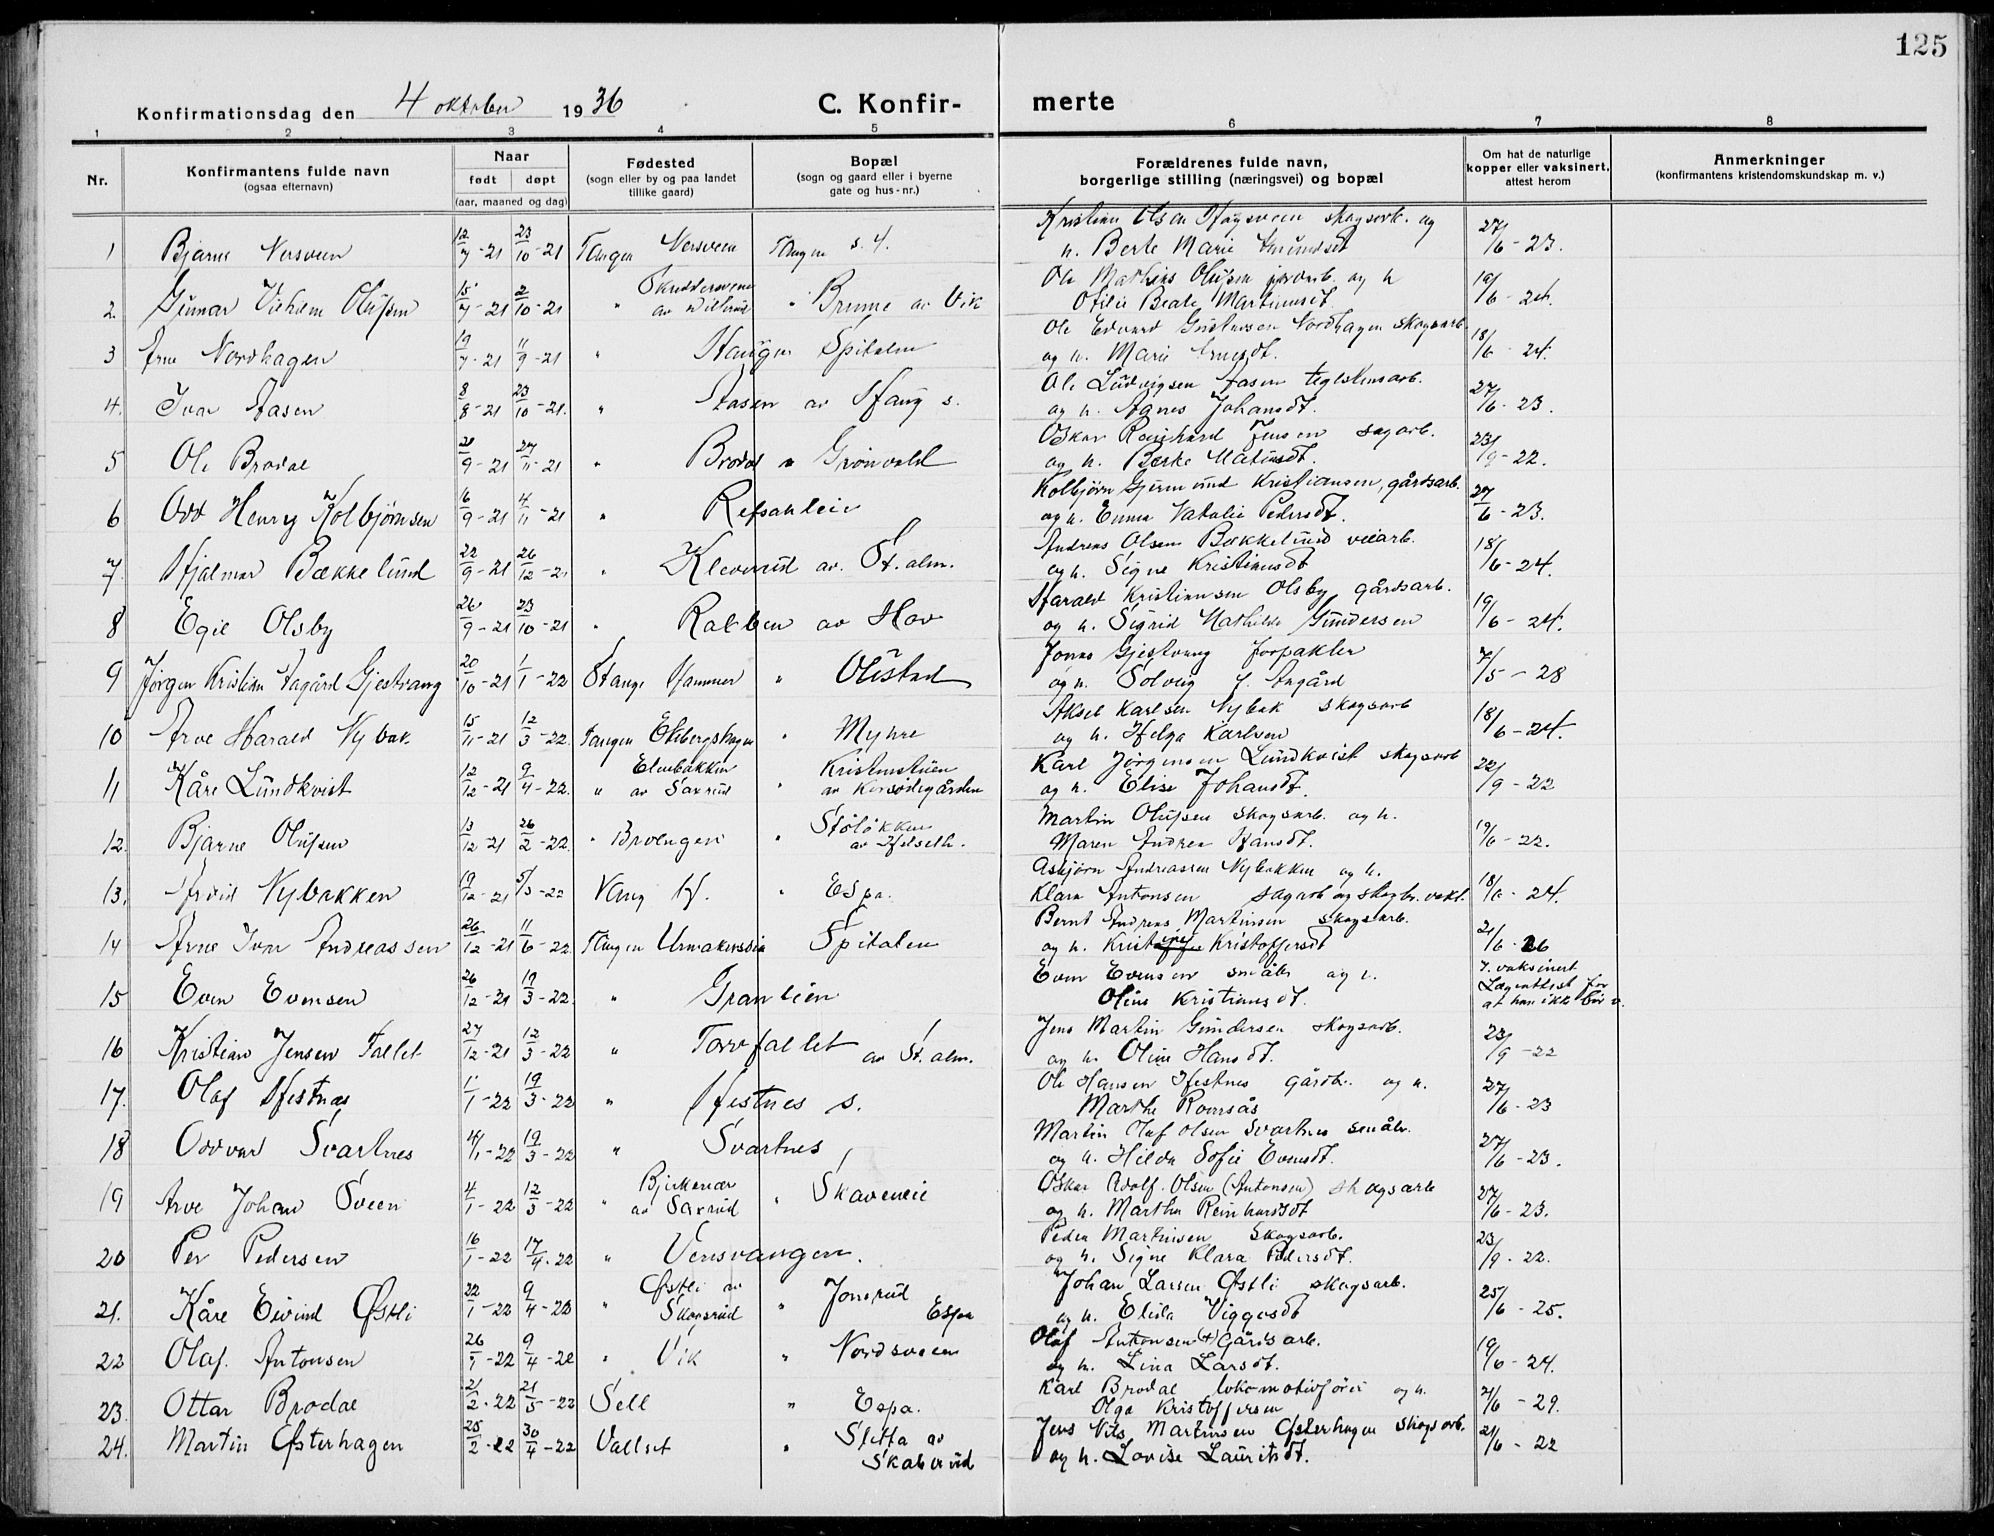 125
Konfirmationsdag den 4 oktober 1936 C. Konfir- merte
1 2 3 4 5 6 7 8
Nr.
Konfirmantens fulde navn
(ogsaa efternavn)
Naar
født døpt
(aar, maaned og dag)
Fødested
(sogn eller by og paa landet
tillike gaard)
Bopæl
(sogn og gaard eller i byerne
gate og hus-nr.)
Forældrenes fulde navn,
borgerlige stilling (næringsvei) og bopæl
Om hat de naturlige
kopper eller vaksinert,
attest herom
Anmerkninger
(konfirmantens kristendomskundskap m. v.)
1 Bjarne Nersveen 12/7-21 23/10-21 Tangen Nersveen Tangen s. 4. Kristian Olsen skogsarb. og
h. Berte Marie 27/6-23.
2 Gunnar Olufsen 15/7-21 2/10-21 " Brume av Vik Ole Mathias Olufsen og h
Otilie Beate Martinusdt. 19/6-24.
3 Arne Nordhagen 19/7-21 11/9-21 " Haugen Spitalen Ole Edvard Gustavsen Nordhagen skogsarb.
og h. Marie 18/6-24.
4. Ivar Aasen 8/8-21 23/10-21. " Aasen av Haug s. Ole Ludvigsen Aasen
og h. Agnes Johansdt. 27/6-23.
5 Ole Brodal 21/11-21 " Brodal " Grønvold Oskar Reinhard Jensen sagarb.
og h. 23/9-22.
6 Odd Henry Kolbjørnsen 16/9-21 4/11-21 " Refsahleir Kolbjørn Kristiansen, gårdsarb.
og h. Emma Natalie Pedersdt. 27/6-23.
7. Hjalmar Bækkelund 22/9-21 26/12-21 " Kleverud av. St. alm. Andreas Olsen Bækkelund veiarb.
og h. Signe Kristiansdt 18/6-24.
8 Egil Olsby 26/9-21 23/10-21 " Rabben av Hov Harald Kristiansen Olsby gårdsarb.
og h. Sigrid Mathilde Gundersen 19/6-24.
9 Jörgen Kristian Gjestvang 20/10-21 1/1-22 Stange Hammer " Olistad Jonas Gjestvang forpakter
og h. Solveig f. 7/5-28
10 Arve Harald Nybak. 15/11-21 12/3-22. Tangen Ekbergshagen " Myhre Aksel Karlsen Nybak skogsarb
og h. Helga Karlsen 18/6-24.
11 Kåre Lundkvist 12/12-21 9/4-22. " av Saxrud " Kristinstuen
av Korsødegården Karl Jörgensen Lundkvist skogsarb
og h. Elise Johansdt. 22/9-22
12. Bjarne Olufsen 13/12-21 26/2-22. " Broengen " Stöløkken
av Martin Olufsen skogsarb. og h.
Maren Andrea Hansdt. 19/6-22.
13. Arvid Nybakken 19/12-21 5/3-22 Vang H. " Espa. Asbjørn Andreassen Nybakken og h.
Klara Antonsen sagarb og 18/6-24.
14 Arne Ivar Andreassen 26/12-21 11/6-22. Tangen Spitalen Bernt Andreas Martinsen skogsarb.
og h. Kristine Kristoffersdt 21/6-26
15 Even Evensen 26/12-21 19/3-22. " Granlien Even Evensen småbr og h.
Oline Kristiansdt. I. vaksinert
Lægeattest for
at han ikke bør v.
16 Kristian Jensen Fallet 27/12-21 12/3-22 " Torvfallet av St. alm. Jens Martin Gundersen skogsarb.
og h. Oline Hansdt. 23/9-22
17. Olaf Hestnæs 1/1-22 19/3-22 " Hestnes s. Ole Hansen Hestnes gårdbr. og h.
Marthe Romsås 27/6-23
18 Oddvar Svartnes 4/1-22 19/3-22 " Svartnes Martin Olaf Olsen Svartnes småbr.
og h. Hilda Sofie Evensdt. 27/6-23.
19 Arve Johan Sveen 4/1-22 12/3-22 " av Saxrud " Skaveneie Oskar Adolf Olsen (Antonsen) skogsarb
og h. Martha Reinhardsdt 27/6-23.
20 Per Pedersen 16/1-22 17/4-22 " Vensvangen. Peder Martinsen skogsarb.
og h. Signe Klara Pedersdt. 23/9-22.
21. Kåre Eivind Østli 22/1-22 9/4-22 " Østli av
Skogsrud " Jonsrud
Espa Johan Larsen Østli skogsarb.
og h. Elida Viggosdt 25/6-25.
22 Olaf. Antonsen 26/1-22 9/4-22 " Vik " Nordsveen Olaf Antonsen (+) gårdsarb.
og h. Lina Larsdt. 19/6-24.
23. Ottar Brodal 21/2-22 21/5-22 Sell " Espa. Karl Brodal lokomotivfører og h.
Olga Kristoffersen 21/6-29.
24. Martin Østerhagen 25/2-22 30/4-22 Vallset " Sletta av
Skaberud Jens Nils Martinsen Østerhagen skogsarb.
og h. Lovise Lauritsdt. 21/6-22